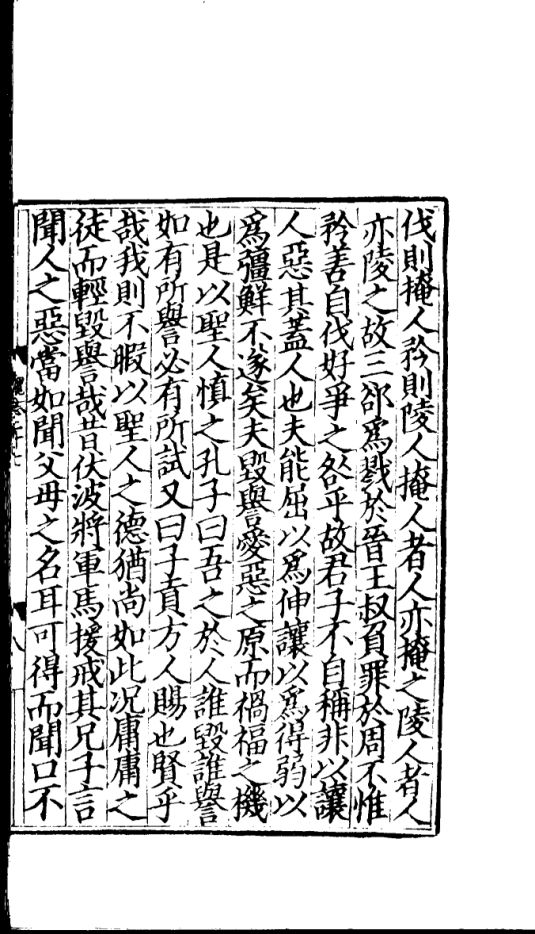 伐則掩人矜則陵人掩人者人亦掩之陵人者人
亦陵之故三郤爲戮於晉王叔負罪於周不惟
矜善自伐好爭之咎乎故君子不自稱非以讓
人惡其蓋人也夫能屈以爲伸讓以爲得弱以
爲彊鮮不遂矣夫毀譽愛惡之原而禍福之機
也是以聖人慎之孔子曰吾之於人誰毀誰譽
如有所譽必有所試又曰子貢方人賜也賢乎
哉我則不暇以聖人之德猶尚如此况庸庸之
徒而輕毀譽哉昔伏波將軍馬援戒其兄子言
聞人之惡當如聞父母之名耳可得而聞口不